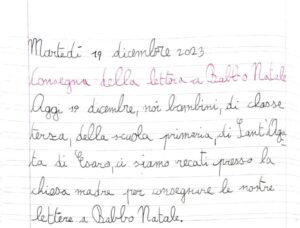 Martedì 19 dicembre 2023
Consegna della lettera a Babbo Natale
Oggi 19 dicembre, noi bambini, di classe
terza, della scuola primaria, di Sant'Aga
ta di Esaro, ci siamo recati presso la
chiesa madre per consegnare le nostre
lettere a Babbo Natale.